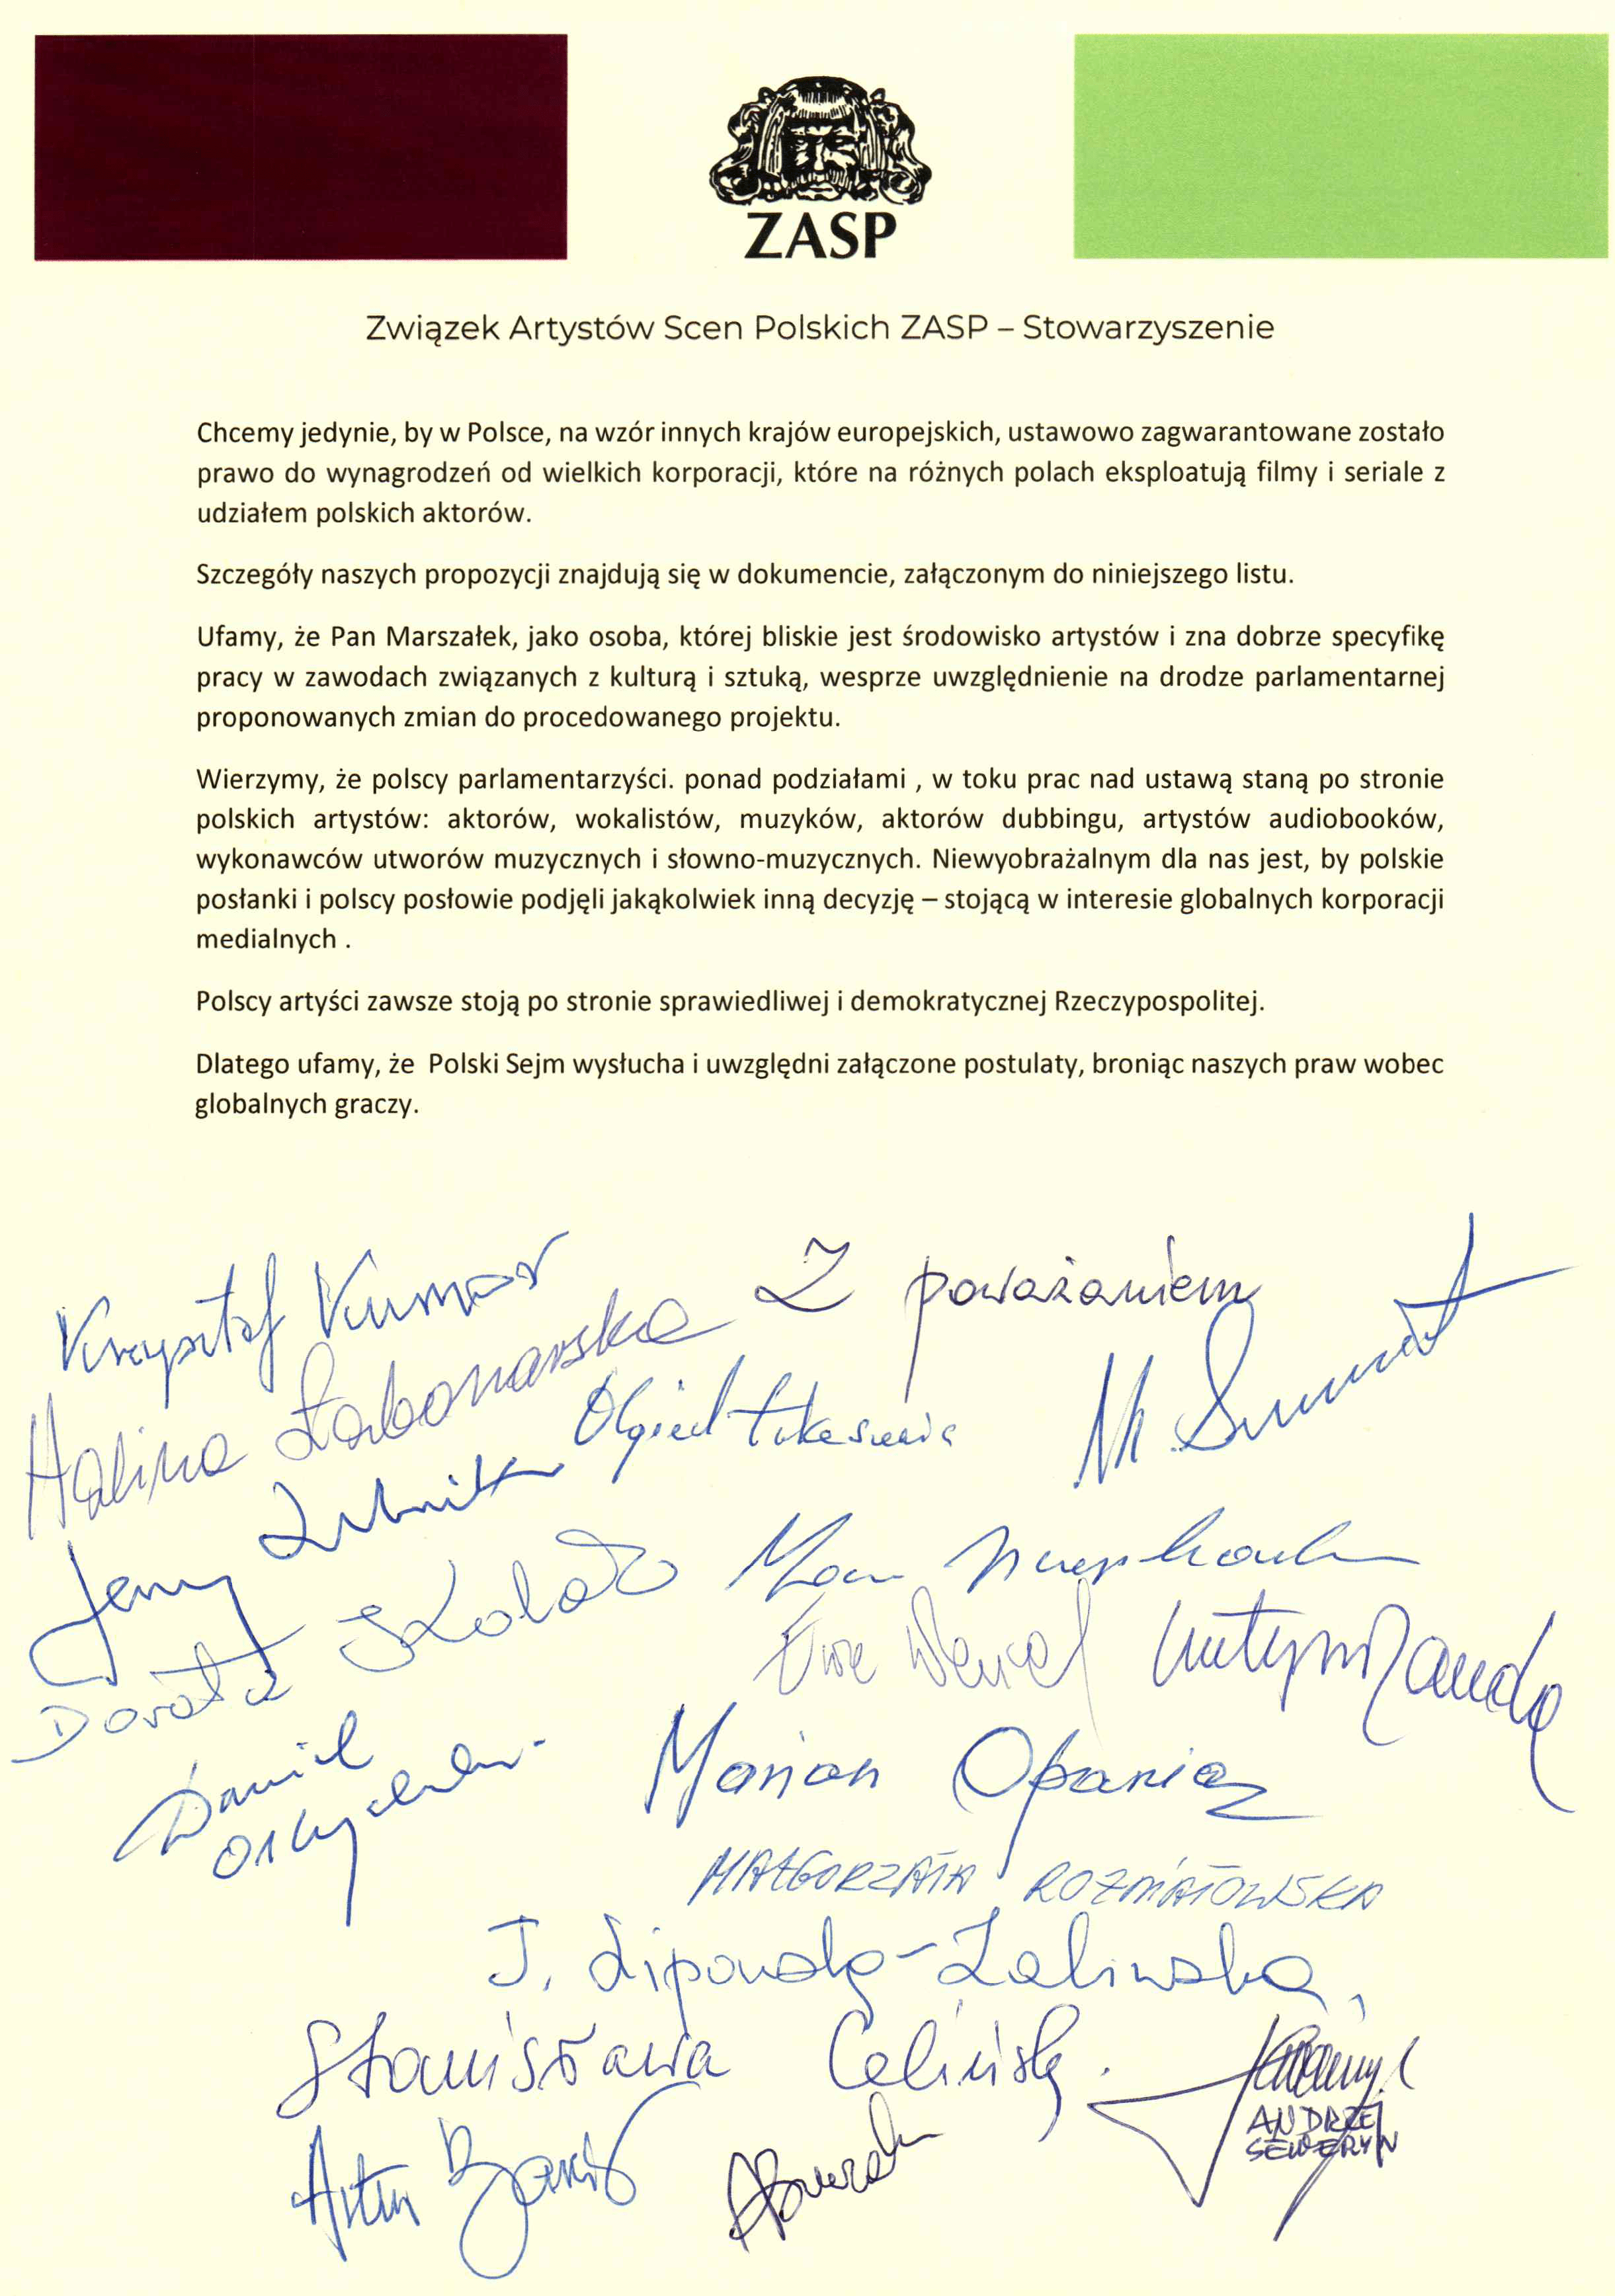 ZASP
Związek Artystów Scen Polskich ZASP – Stowarzyszenie
Chcemy jedynie, by w Polsce, na wzór innych krajów europejskich, ustawowo zagwarantowane zostało
prawo do wynagrodzeń od wielkich korporacji, które na różnych polach eksploatują filmy i seriale z
udziałem polskich aktorów.
Szczegóły naszych propozycji znajdują się w dokumencie, załączonym do niniejszego listu.
Ufamy, że Pan Marszałek, jako osoba, której bliskie jest środowisko artystów i zna dobrze specyfikę
pracy w zawodach związanych z kulturą i sztuką, wesprze uwzględnienie na drodze parlamentarnej
proponowanych zmian do procedowanego projektu.
Wierzymy, że polscy parlamentarzyści. ponad podziałami , w toku prac nad ustawą staną po stronie
polskich artystów: aktorów, wokalistów, muzyków, aktorów dubbingu, artystów audiobooków,
wykonawców utworów muzycznych i słowno-muzycznych. Niewyobrażalnym dla nas jest, by polskie
posłanki i polscy posłowie podjęli jakąkolwiek inną decyzję – stojącą w interesie globalnych korporacji
medialnych .
Polscy artyści zawsze stoją po stronie sprawiedliwej i demokratycznej Rzeczypospolitej.
Dlatego ufamy, że Polski Sejm wysłucha i uwzględni załączone postulaty, broniąc naszych praw wobec
globalnych graczy.
Z poważaniem
Krzysztof
Halina Łabonarska
Olgierd Łukaszewicz
Jerzy Zelnik
Dorota
Ewa Wencel
Daniel Olbrychski
Marian Opania
MAŁGORZATA ROŻNIATOWSKA
J. Lipowska-Zalewska
Stanisława Celińska
Artur Barciś
ANDRZEJ
SEWERYN